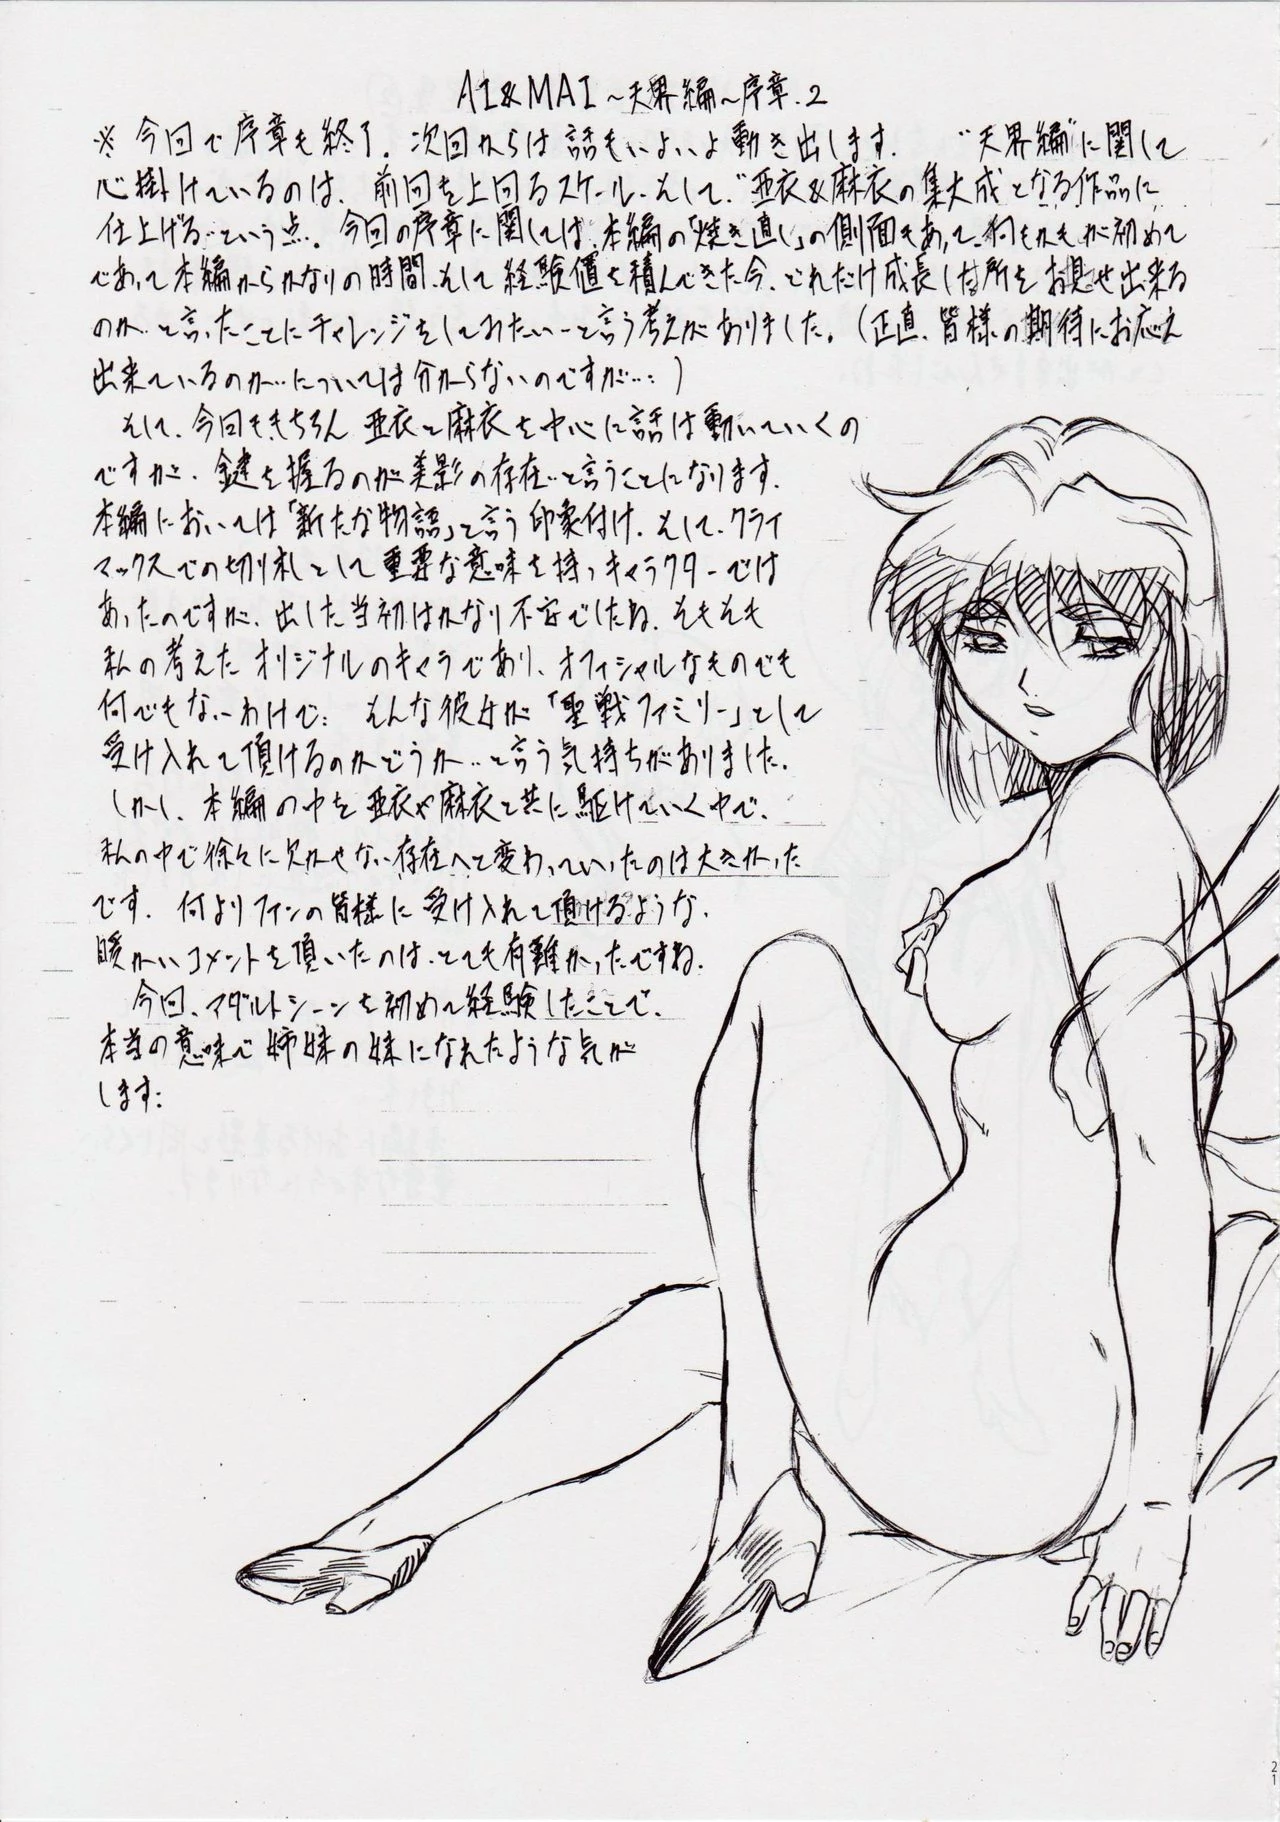 AI&MAI～天界編～序章.2
※今回で序章も終了.次回からは話もいよいよ動き出します. “天界編”に関して
心掛けているのは、前回を上回るスケール、そして、“亜衣&麻衣の集大成となる作品に
仕上げる”という点。今回の序章に関しては、本編の「焼き直し」の側面もあって、何もかもが初めて
であって本編からかなりの時間、そして経験値を積んできた今、どれだけ成長した所をお見せ出来る
のか…と言ったことにチャレンジをしてみたい―と言う考えがありました。(正直、皆様の期待にお応え
出来ているのか…については分からないのですが…:)
そして、今回もきちろん 亜衣と麻衣を中心に話は動いていくの
ですが、鍵を握るのが美影の存在…と言うことになります.
本編においては「新たな物語」と言う印象付け、そして、クライ
マックスでの切り札として重要な意味を持つキャラクターでは
あったのですが、出した当初はかなり不安でしたね.そもそも
私の考えたオリジナルのキャラであり、オフィシャルなものでも
何でもないわけで: そんな彼女が「聖戦ファミリー」として
受け入れて頂けるのかどうか…と言う気持ちがありました.
しかし、本編の中を亜衣や麻衣と共に駆けていく中で、
私の中で徐々に欠かせない存在へと変わっていったのは大きかった
です. 何よりファンの皆様に受け入れて頂けるような、
暖かいコメントを頂いたのは、とても有難かったですね.
今回、アダルトシーンを初めて経験したことで、
本当の意味で姉妹の妹になれたような気が
します:
21